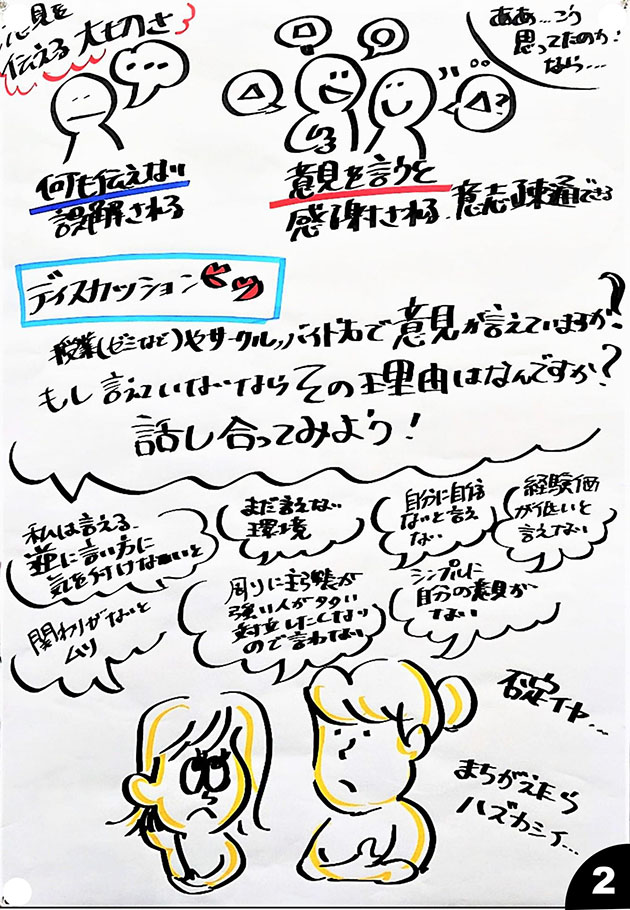 意見を
伝える大切さ
...
何も伝えない
誤解される
意見を言うと
感謝される、意志疎通できる
△?
ああ…こう
思ってたのか!
なら…
ディスカッション
授業(ゼミなど)やサークル、バイト先で意見が言えていますか?
もし言えていないならその理由はなんですか?
話し合ってみよう!
私は言える、
逆に言い方に
気をつけなぁいと
まだ言えない
環境
自分に自信
ないと言え
ない
経験値
が低いと
言えない
関わりがないと
ムリ
周りに主張が
強い人が多い
対立したくない
ので言わない
シンプルに
自分の意見が
ない
否定イヤ…
まちがえたら
ハズカシイ…
2